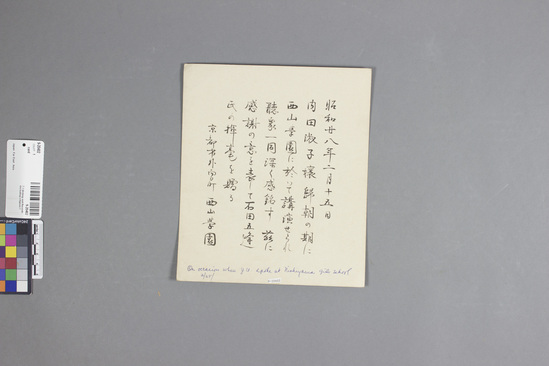 昭和廿八年二月十五日
内田淑子嬢歸朝の期に
西山学園に於いて講演せられ
聴衆一同深く感銘す 茲に
感謝の意を表して石田五
氏の揮毫を贈る
京都市外 西山学園
On occasion when spoke at Nishiyama School